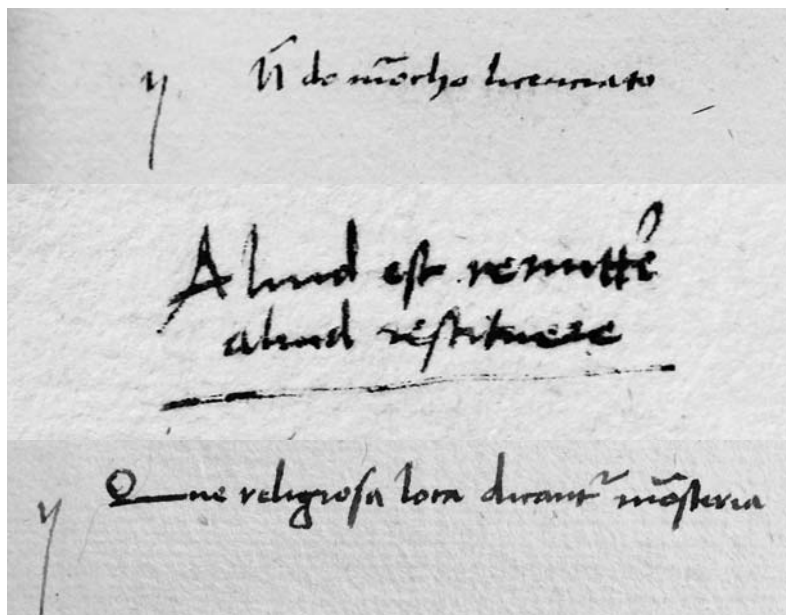 y N̄ de mōcho licenciato
Aliud est remitte᷑
aliud restituere
y Que religiosa loca dicant᷑ mōasteria